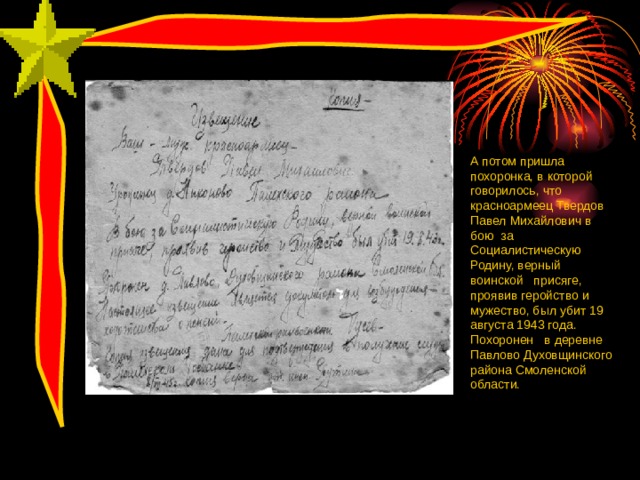 Копия –
Извещение
Ваш – муж красноармеец –
Твердов Павел Михайлович
Уроженец д. Никоново Палехского района
В бою за Социалистическую Родину, верный воинской
присяге, проявив геройство и мужество был убит 19.8.43г.
Похоронен д. Павлово, Духовщинского района Смоленской обл.
Настоящее извещение является документом для возбуждения –
ходатайства о пенсии.
Копия извещения дана для
копия верна
А потом пришла
похоронка, в которой
говорилось, что
красноармеец Твердов
Павел Михайлович в
бою за
Социалистическую
Родину, верный
воинской присяге,
проявив геройство и
мужество, был убит 19
августа 1943 года.
Похоронен в деревне
Павлово Духовщинского
района Смоленской
области.